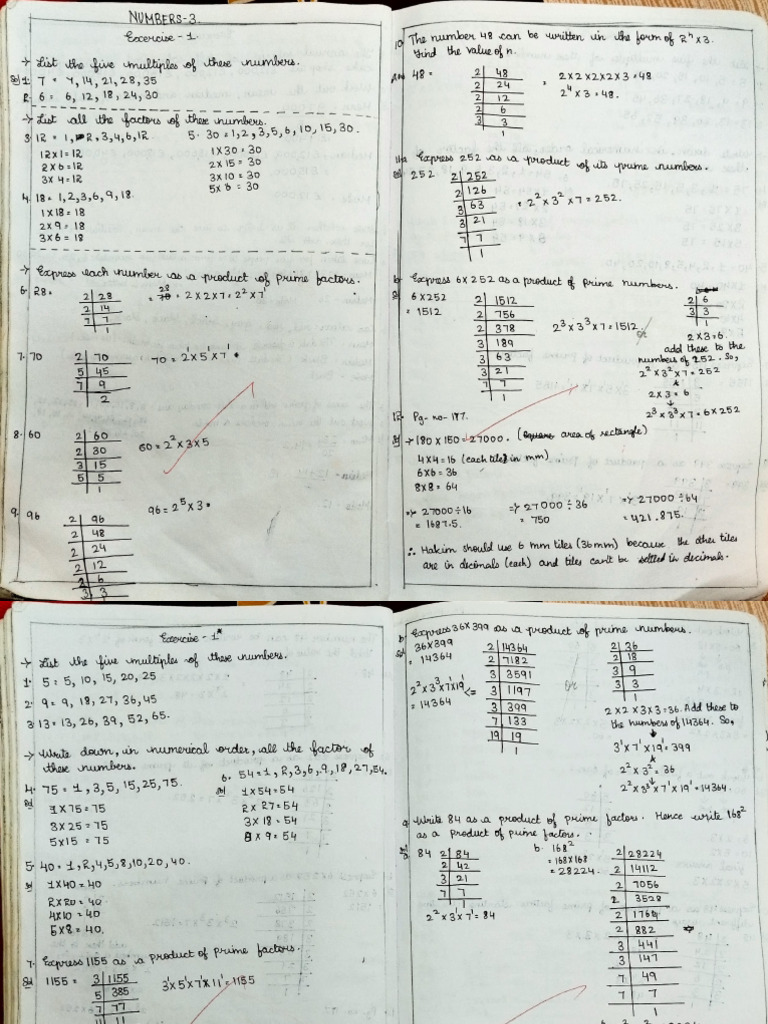 NUMBERS-3.
Exercise - 1.
→ List the five multiples of these numbers.
1. 7 = 7, 14, 21, 28, 35
2. 6 = 6, 12, 18, 24, 30
→ List all the factors of these numbers.
3. 12 = 1, 2, 3, 4, 6, 12
12 x 1 = 12
2 x 6 = 12
3 x 4 = 12
5. 30 = 1, 2, 3, 5, 6, 10, 15, 30.
1 x 30 = 30
2 x 15 = 30
3 x 10 = 30
5 x 6 = 30
4. 18 = 1, 2, 3, 6, 9, 18.
1 x 18 = 18
2 x 9 = 18
3 x 6 = 18
→ Express each number as a product of prime factors.
6. 28 =
2 | 28
2 | 14
7 | 7
1
28
= 2 x 2 x 7 = 2² x 7¹
7. 70
2 | 70
5 | 45
7 | 9
2
70 = 2¹ x 5¹ x 7¹
8. 60
2 | 60
2 | 30
3 | 15
5 | 5
1
60 = 2² x 3 x 5
9. 96
2 | 96
2 | 48
2 | 24
2 | 12
2 | 6
3 | 3
96 = 2⁵ x 3.
10. The number 48 can be written in the form of 2ⁿ x 3.
Find the value of n.
Ans 48 =
2 | 48
2 | 24
2 | 12
2 | 6
3 | 3
1
= 2 x 2 x 2 x 2 x 3 = 48
2⁴ x 3 = 48.
11.a Express 252 as a product of its prime numbers.
252
2 | 252
2 | 126
3 | 63
3 | 21
7 | 7
1
= 2² x 3² x 7 = 252.
b. Express 6 x 252 as a product of prime numbers.
6 x 252
= 1512
2 | 1512
2 | 756
2 | 378
3 | 189
3 | 63
3 | 21
7 | 7
1
2³ x 3³ x 7 = 1512
or
2 | 6
3 | 3
1
2 x 3 = 6.
add these to the
numbers of 252. So,
2² x 3² x 7 = 252
2 x 3 = 6
2³ x 3³ x 7 = 6 x 252
12. Pg- no- 187.
→ 180 x 150 = 27000. (area of rectangle)
4 x 4 = 16 (each tiles in mm)
6 x 6 = 36
8 x 8 = 64
27000 ÷ 16
= 1687.5.
27000 ÷ 36
= 750
27000 ÷ 64
= 421.875.
∴ Hakim should use 6 mm tiles (36mm) because the other tiles
are in decimals (each) and tiles can't be settled in decimals.
Exercise - 1*
→ List the five multiples of these numbers.
1. 5 = 5, 10, 15, 20, 25
2. 9 = 9, 18, 27, 36, 45
3. 13 = 13, 26, 39, 52, 65.
→ Write down, in numerical order, all the factor of
these numbers.
4. 75 = 1, 3, 5, 15, 25, 75.
1 x 75 = 75
3 x 25 = 75
5 x 15 = 75
6. 54 = 1, 2, 3, 6, 9, 18, 27, 54.
1 x 54 = 54
2 x 27 = 54
3 x 18 = 54
6 x 9 = 54
5. 40 = 1, 2, 4, 5, 8, 10, 20, 40.
1 x 40 = 40
2 x 20 = 40
4 x 10 = 40
5 x 8 = 40.
7. Express 1155 as a product of prime factors.
1155 =
3 | 1155
5 | 385
7 | 77
11 | 11
3¹ x 5¹ x 7¹ x 11¹ = 1155
b. Express 36 x 399 as a product of prime numbers.
36 x 399
= 14364
2² x 3³ x 7¹ x 19¹ <=
= 14364
2 | 14364
2 | 7182
3 | 3591
3 | 1197
3 | 399
7 | 133
19 | 19
1
or
2 | 36
2 | 18
3 | 9
3 | 3
1
2 x 2 x 3 x 3 = 36. Add these to
the numbers of 14364. So,
3¹ x 7¹ x 19¹ = 399
2² x 3² = 36
2² x 3³ x 7¹ x 19¹ = 14364.
9. Write 84 as a product of prime factors. Hence write 168²
as a product of prime factors.
84
2 | 84
2 | 42
3 | 21
7 | 7
1
2² x 3¹ x 7¹ = 84
b. 168²
= 168 x 168
= 28224.
2 | 28224
2 | 14112
2 | 7056
2 | 3528
2 | 1764
2 | 882
3 | 441
3 | 147
7 | 49
7 | 7
1